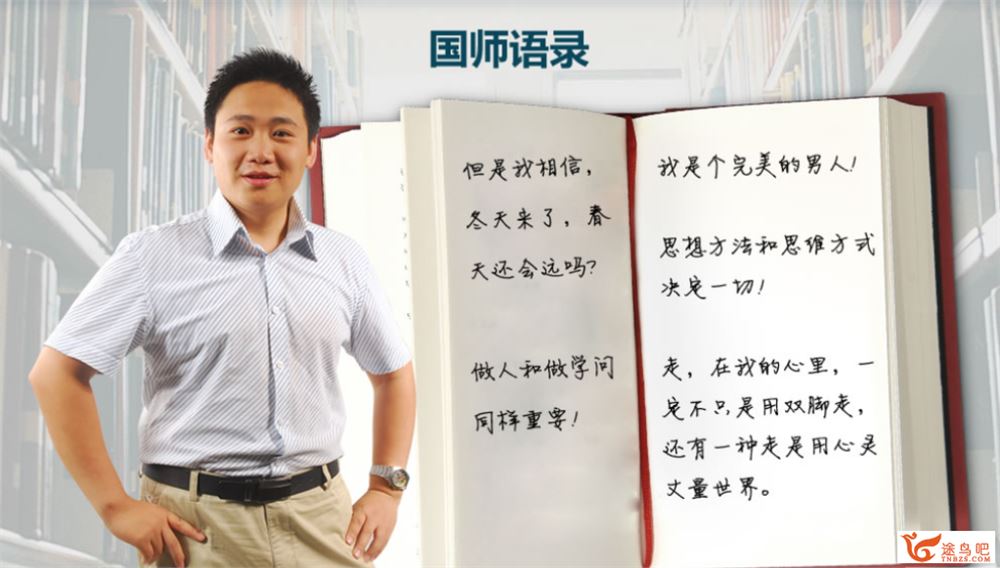 国师语录
但是我相信，
冬天来了，春
天还会远吗？
做人和做学问
同样重要！
我是个完美的男人！
思想方法和思维方式
决定一切！
走，在我的心里，一
定不只是用双脚走，
还有一种走是用心灵
丈量世界。
途鸟吧
TNBZS.COM